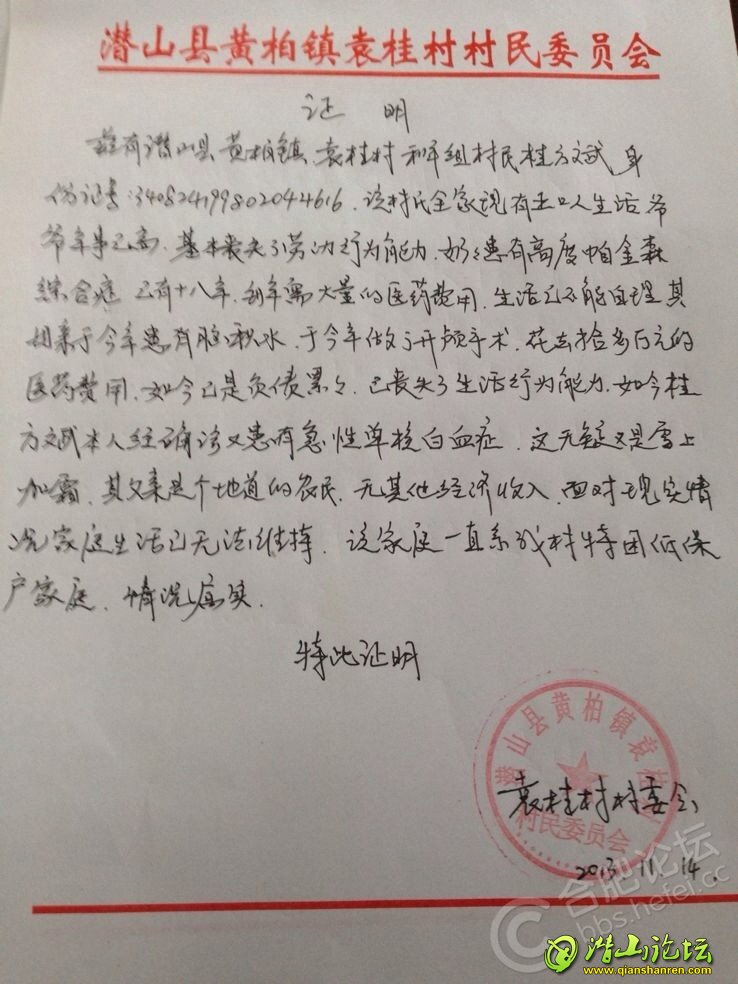 潜山县黄柏镇袁桂村村民委员会
证 明
兹有潜山县黄柏镇袁桂村和平组村民桂方斌身
份证号:340824199802044616.该村民全家现有五口人生活爷
爷年事已高,基本丧失了劳动行为能力.奶々患有高度帕金森
综合症已有十八年,每年需大量的医药费用.生活已不能自理其
母亲于今年患有脑积水,于今年做了开颅手术.花去拾多万元的
医药费用.如今已是负债累々.已丧失了生活行为能力.如今桂
方斌本人经确诊又患有急性单核白血症.这无疑又是雪上
加霜.其父亲是个地道的农民.无其他经济收入.面对现实情
况家庭生活已无法维持.该家庭一直系我村特困低保
户家庭.情况属实.
特此证明
潜山县黄柏镇袁桂
村民委员会
袁桂村村委会
2013.11.14.
合肥论坛
bbs.hefei.cc
潜山论坛
www.qianshanren.com